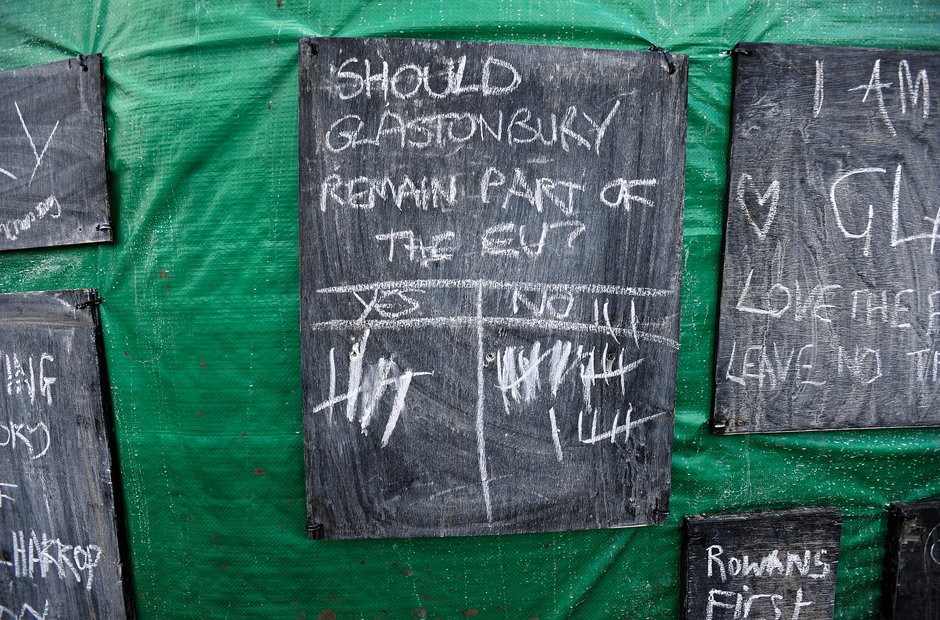 SHOULD
GLASTONBURY
REMAIN PART OF
THE EU?
YES NO
I AM
♥ GLA
LOVE THE F
LEAVE NO
Y
ING
HARROP
ROWANS
First